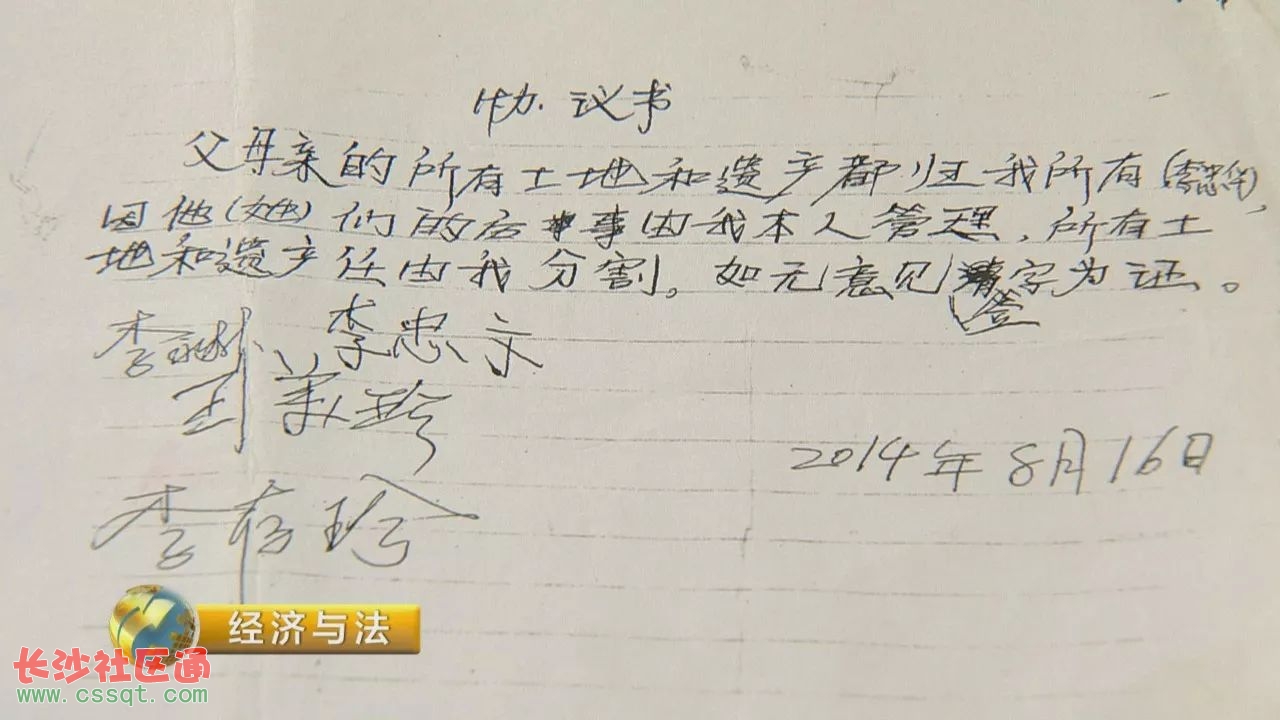 协议书
父母亲的所有土地和遗产都归我所有(李忠华),
因他(她)们的后事由我本人管理,所有土
地和遗产任由我分割。如无意见请签字为证。
李 李忠
美珍
2014年8月16日
李存珍
经济与法
长沙社区通
www.cssqt.com